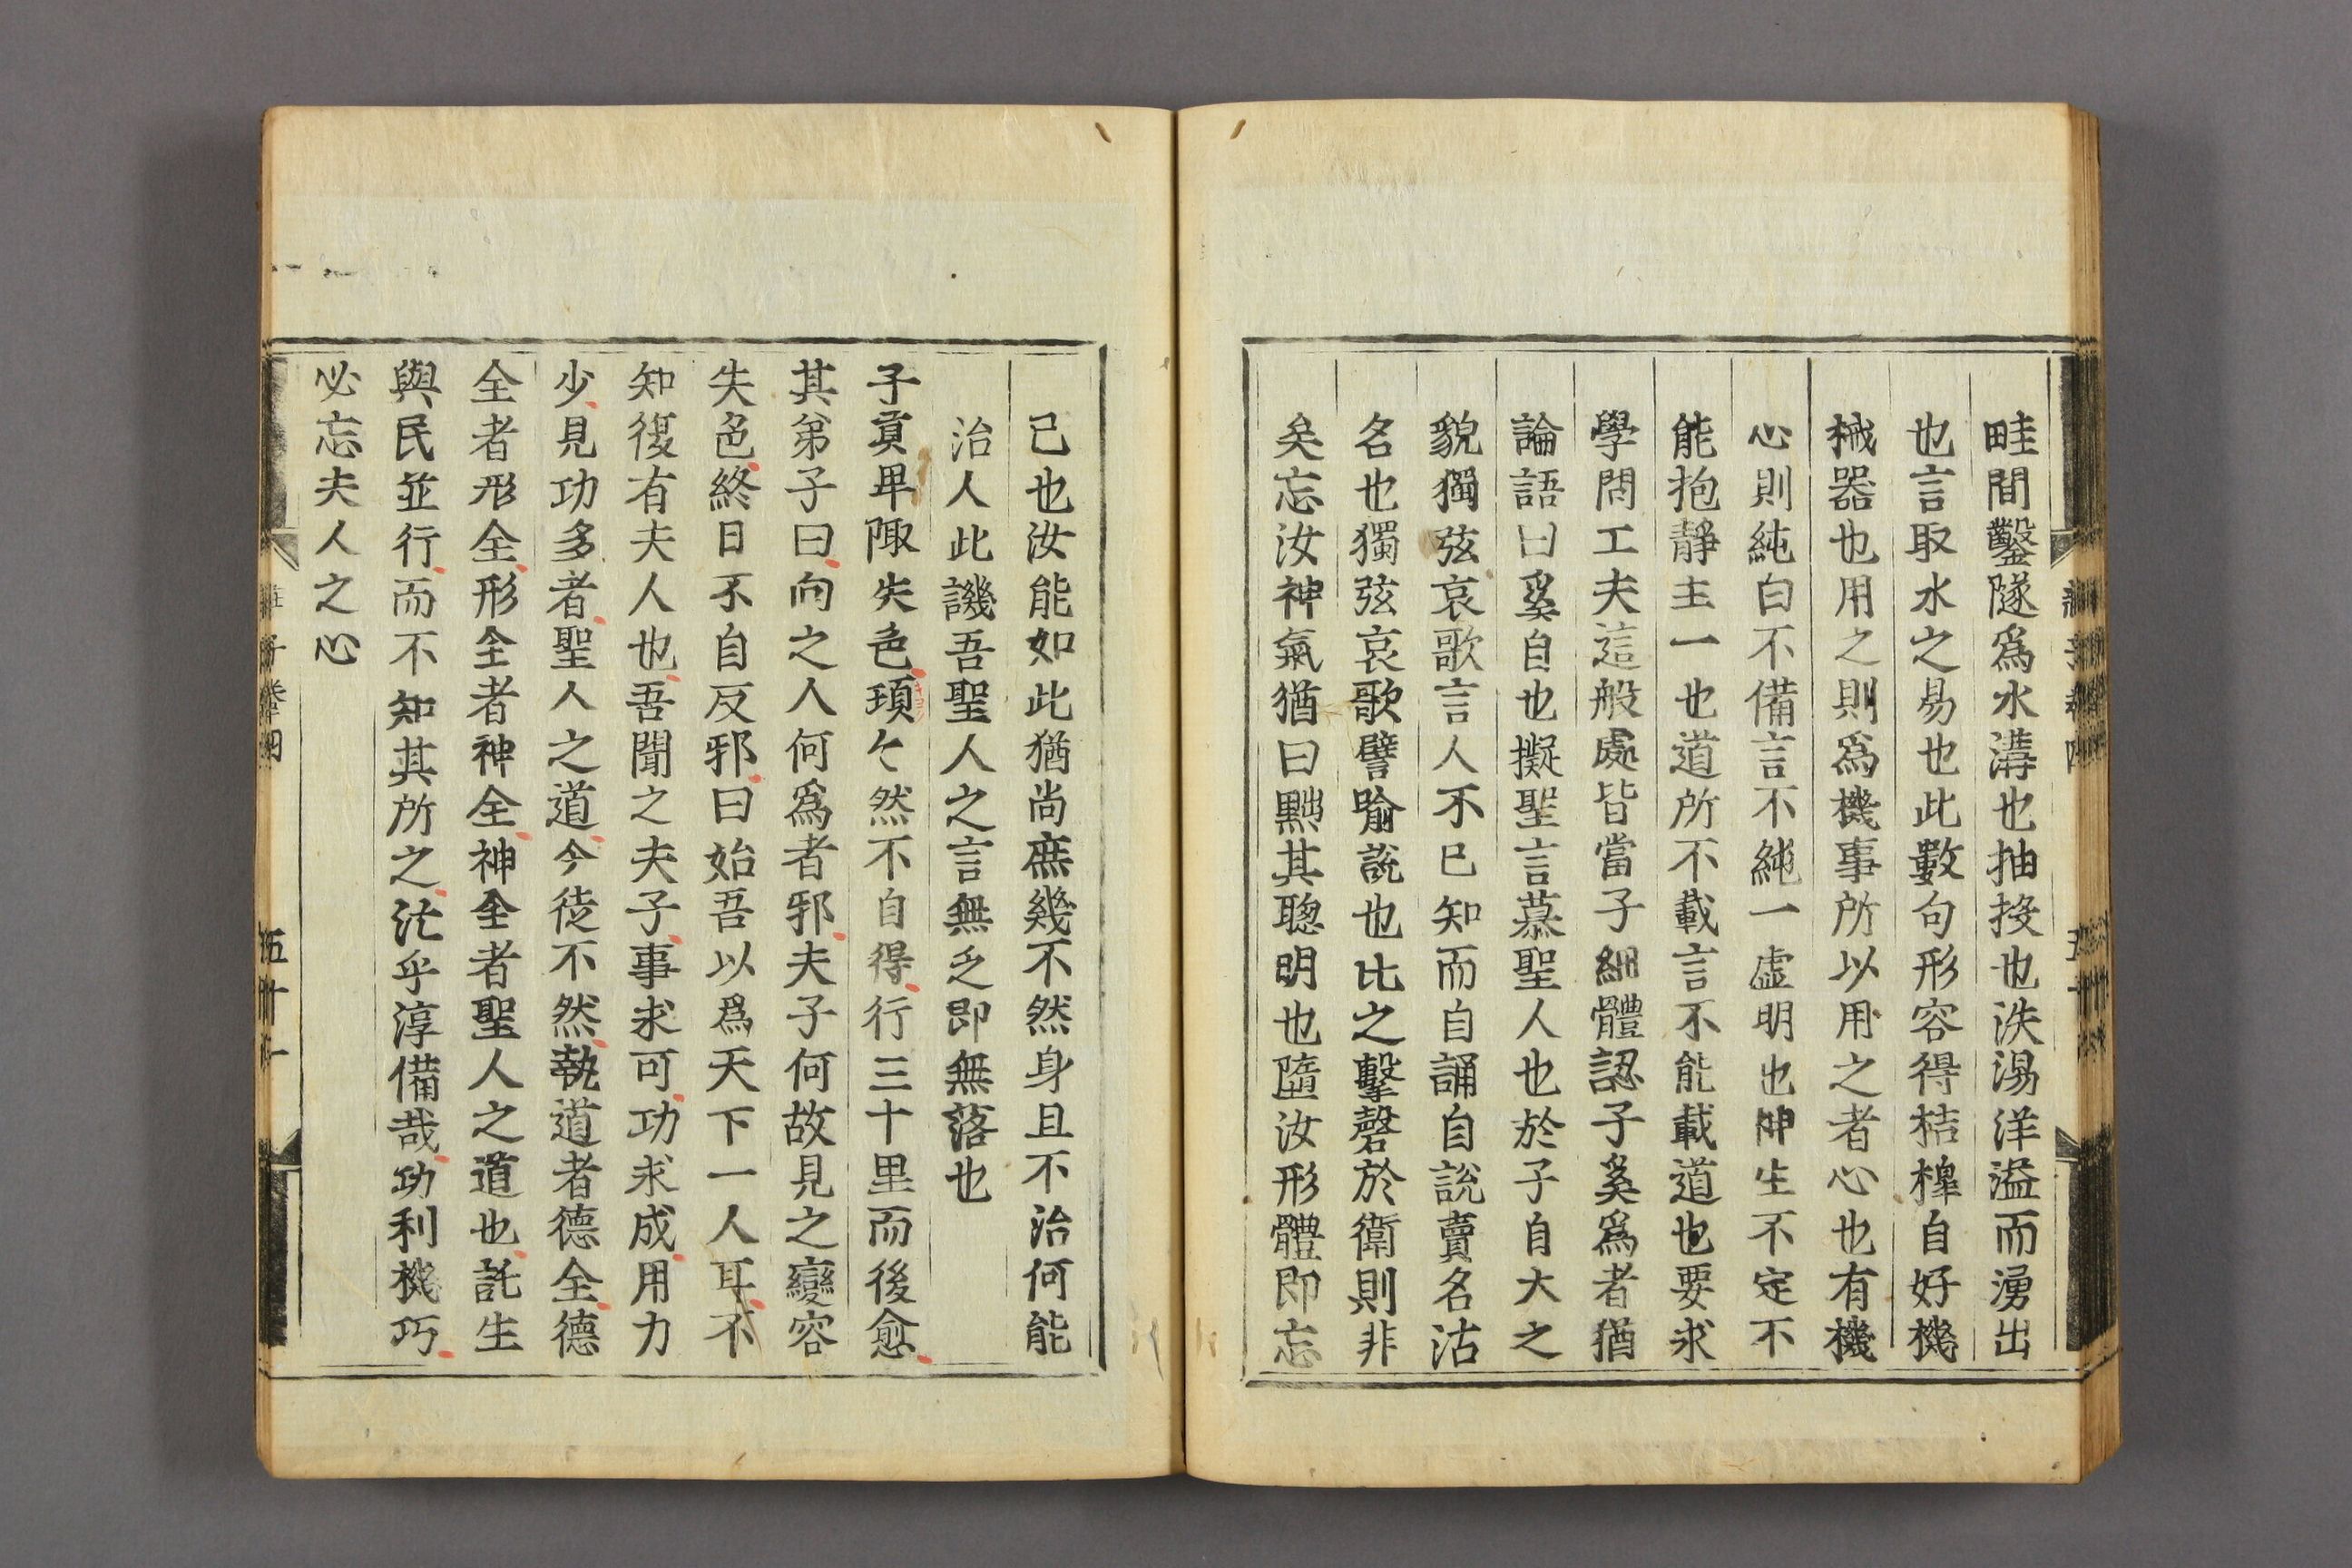 畦間鑿隧爲水溝也抽挍也泆湯洋溢而湧出
也言取水之易也此數句形容得桔槔自好機
械器也用之則爲機事所以用之者心也有機
心則純白不備言不純一虛明也神生不定不
能抱靜主一也道所不載言不能載道也要求
學問工夫這般處皆當子細體認子奚爲者猶
論語曰奚自也擬聖言慕聖人也於子自大之
貌獨弦哀歌言人不已知而自誦自說賣名沽
名也獨弦哀歌譬喻說也比之擊磬於衛則非
矣忘汝神氣猶曰黜其聰明也墮汝形體即忘
己也汝能如此猶尚庶幾不然身且不治何能
治人此譏吾聖人之言無乏即無落也
子貢卑陬失色頊〻然不自得行三十里而後愈
其弟子曰向之人何爲者邪夫子何故見之變容
失色終日不自反邪曰始吾以爲天下一人耳不
知復有夫人也吾聞之夫子事求可功求成用力
少見功多者聖人之道今徒不然執道者德全德
全者形全形全者神全神全者聖人之道也託生
與民並行而不知其所之汒乎淳備哉功利機巧
必忘夫人之心
莊子卷四
五十一